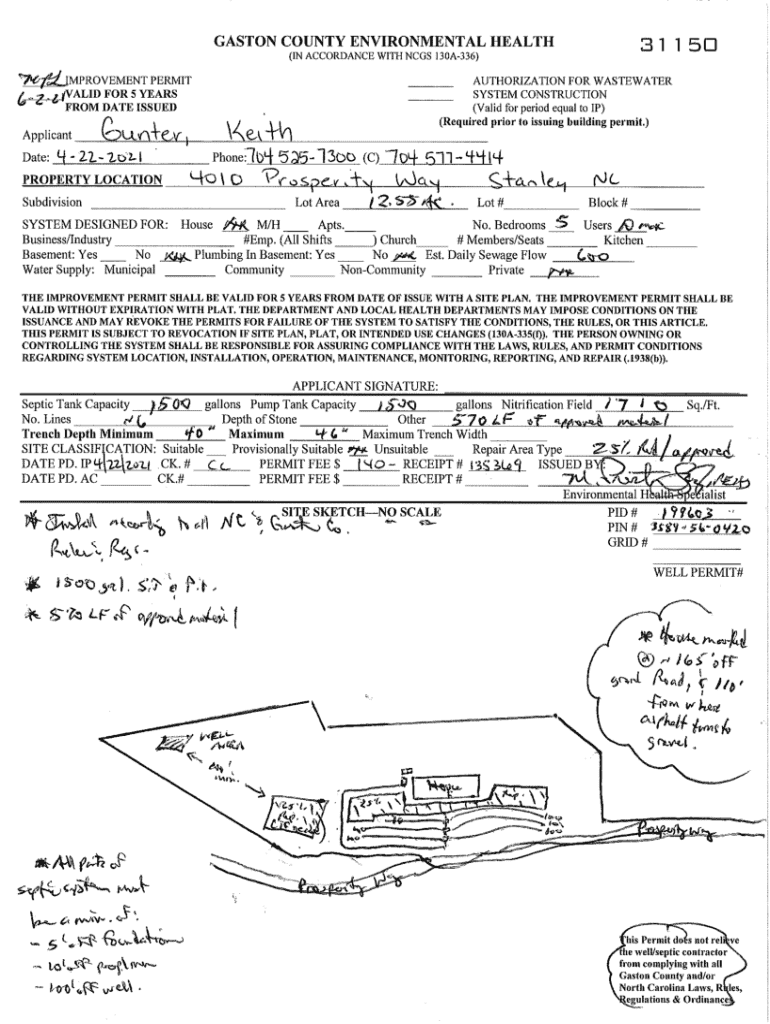 GASTON COUNTY ENVIRONMENTAL HEALTH
31150
(IN ACCORDANCE WITH NCGS 130A-336)
IMPROVEMENT PERMIT
6-2-21 VALID FOR 5 YEARS
FROM DATE ISSUED
AUTHORIZATION FOR WASTEWATER
SYSTEM CONSTRUCTION
(Valid for period equal to IP)
(Required prior to issuing building permit.)
Applicant Gunter, Keith
Date: 4-22-2021 Phone: 704 525-7300 (C) 704 577-4414
PROPERTY LOCATION 4010 Prosperity Way Stanley NC
Subdivision Lot Area 12.55 Ac. Lot # Block #
SYSTEM DESIGNED FOR: House M/H Apts. No. Bedrooms 5 Users 10 max
Business/Industry #Emp. (All Shifts ) Church # Members/Seats Kitchen
Basement: Yes No Plumbing In Basement: Yes No Est. Daily Sewage Flow 600
Water Supply: Municipal Community Non-Community Private
THE IMPROVEMENT PERMIT SHALL BE VALID FOR 5 YEARS FROM DATE OF ISSUE WITH A SITE PLAN. THE IMPROVEMENT PERMIT SHALL BE
VALID WITHOUT EXPIRATION WITH PLAT. THE DEPARTMENT AND LOCAL HEALTH DEPARTMENTS MAY IMPOSE CONDITIONS ON THE
ISSUANCE AND MAY REVOKE THE PERMITS FOR FAILURE OF THE SYSTEM TO SATISFY THE CONDITIONS, THE RULES, OR THIS ARTICLE.
THIS PERMIT IS SUBJECT TO REVOCATION IF SITE PLAN, PLAT, OR INTENDED USE CHANGES (130A-335(f)). THE PERSON OWNING OR
CONTROLLING THE SYSTEM SHALL BE RESPONSIBLE FOR ASSURING COMPLIANCE WITH THE LAWS, RULES, AND PERMIT CONDITIONS
REGARDING SYSTEM LOCATION, INSTALLATION, OPERATION, MAINTENANCE, MONITORING, REPORTING, AND REPAIR (.1938(b)).
APPLICANT SIGNATURE:
Septic Tank Capacity 1500 gallons Pump Tank Capacity 1500 gallons Nitrification Field 1710 Sq./Ft.
No. Lines ~6 Depth of Stone Other 570 LF of approved material
Trench Depth Minimum 40" Maximum 46" Maximum Trench Width
SITE CLASSIFICATION: Suitable Provisionally Suitable Unsuitable Repair Area Type 25% Rd/approved
DATE PD. IP 4/22/2021 CK. # CC PERMIT FEE $ 140- RECEIPT # 135369 ISSUED BY
DATE PD. AC CK.# PERMIT FEE $ RECEIPT #
Environmental Health Specialist
SITE SKETCH—NO SCALE
PID # 199603
PIN # 3584-56-0420
GRID #
WELL PERMIT#
* Install according to all NC & Gaston Co.
Rules & Regs-
* 1500 gal. S.T & P.T.
* 570 LF of approved material
* House marked
@ ~165' off
gravel Road, & 110'
from where
asphalt turns to
gravel.
WELL
AREA
100'
min.
25%
Rep.
House
25%
Rep.
Prosperity Way
Prosperity Way
* All parts of
septic system must
be a min. of:
- 5' off foundation
- 10' off prop line
- 100' off well.
This Permit does not relieve
the well/septic contractor
from complying with all
Gaston County and/or
North Carolina Laws, Rules,
Regulations & Ordinances